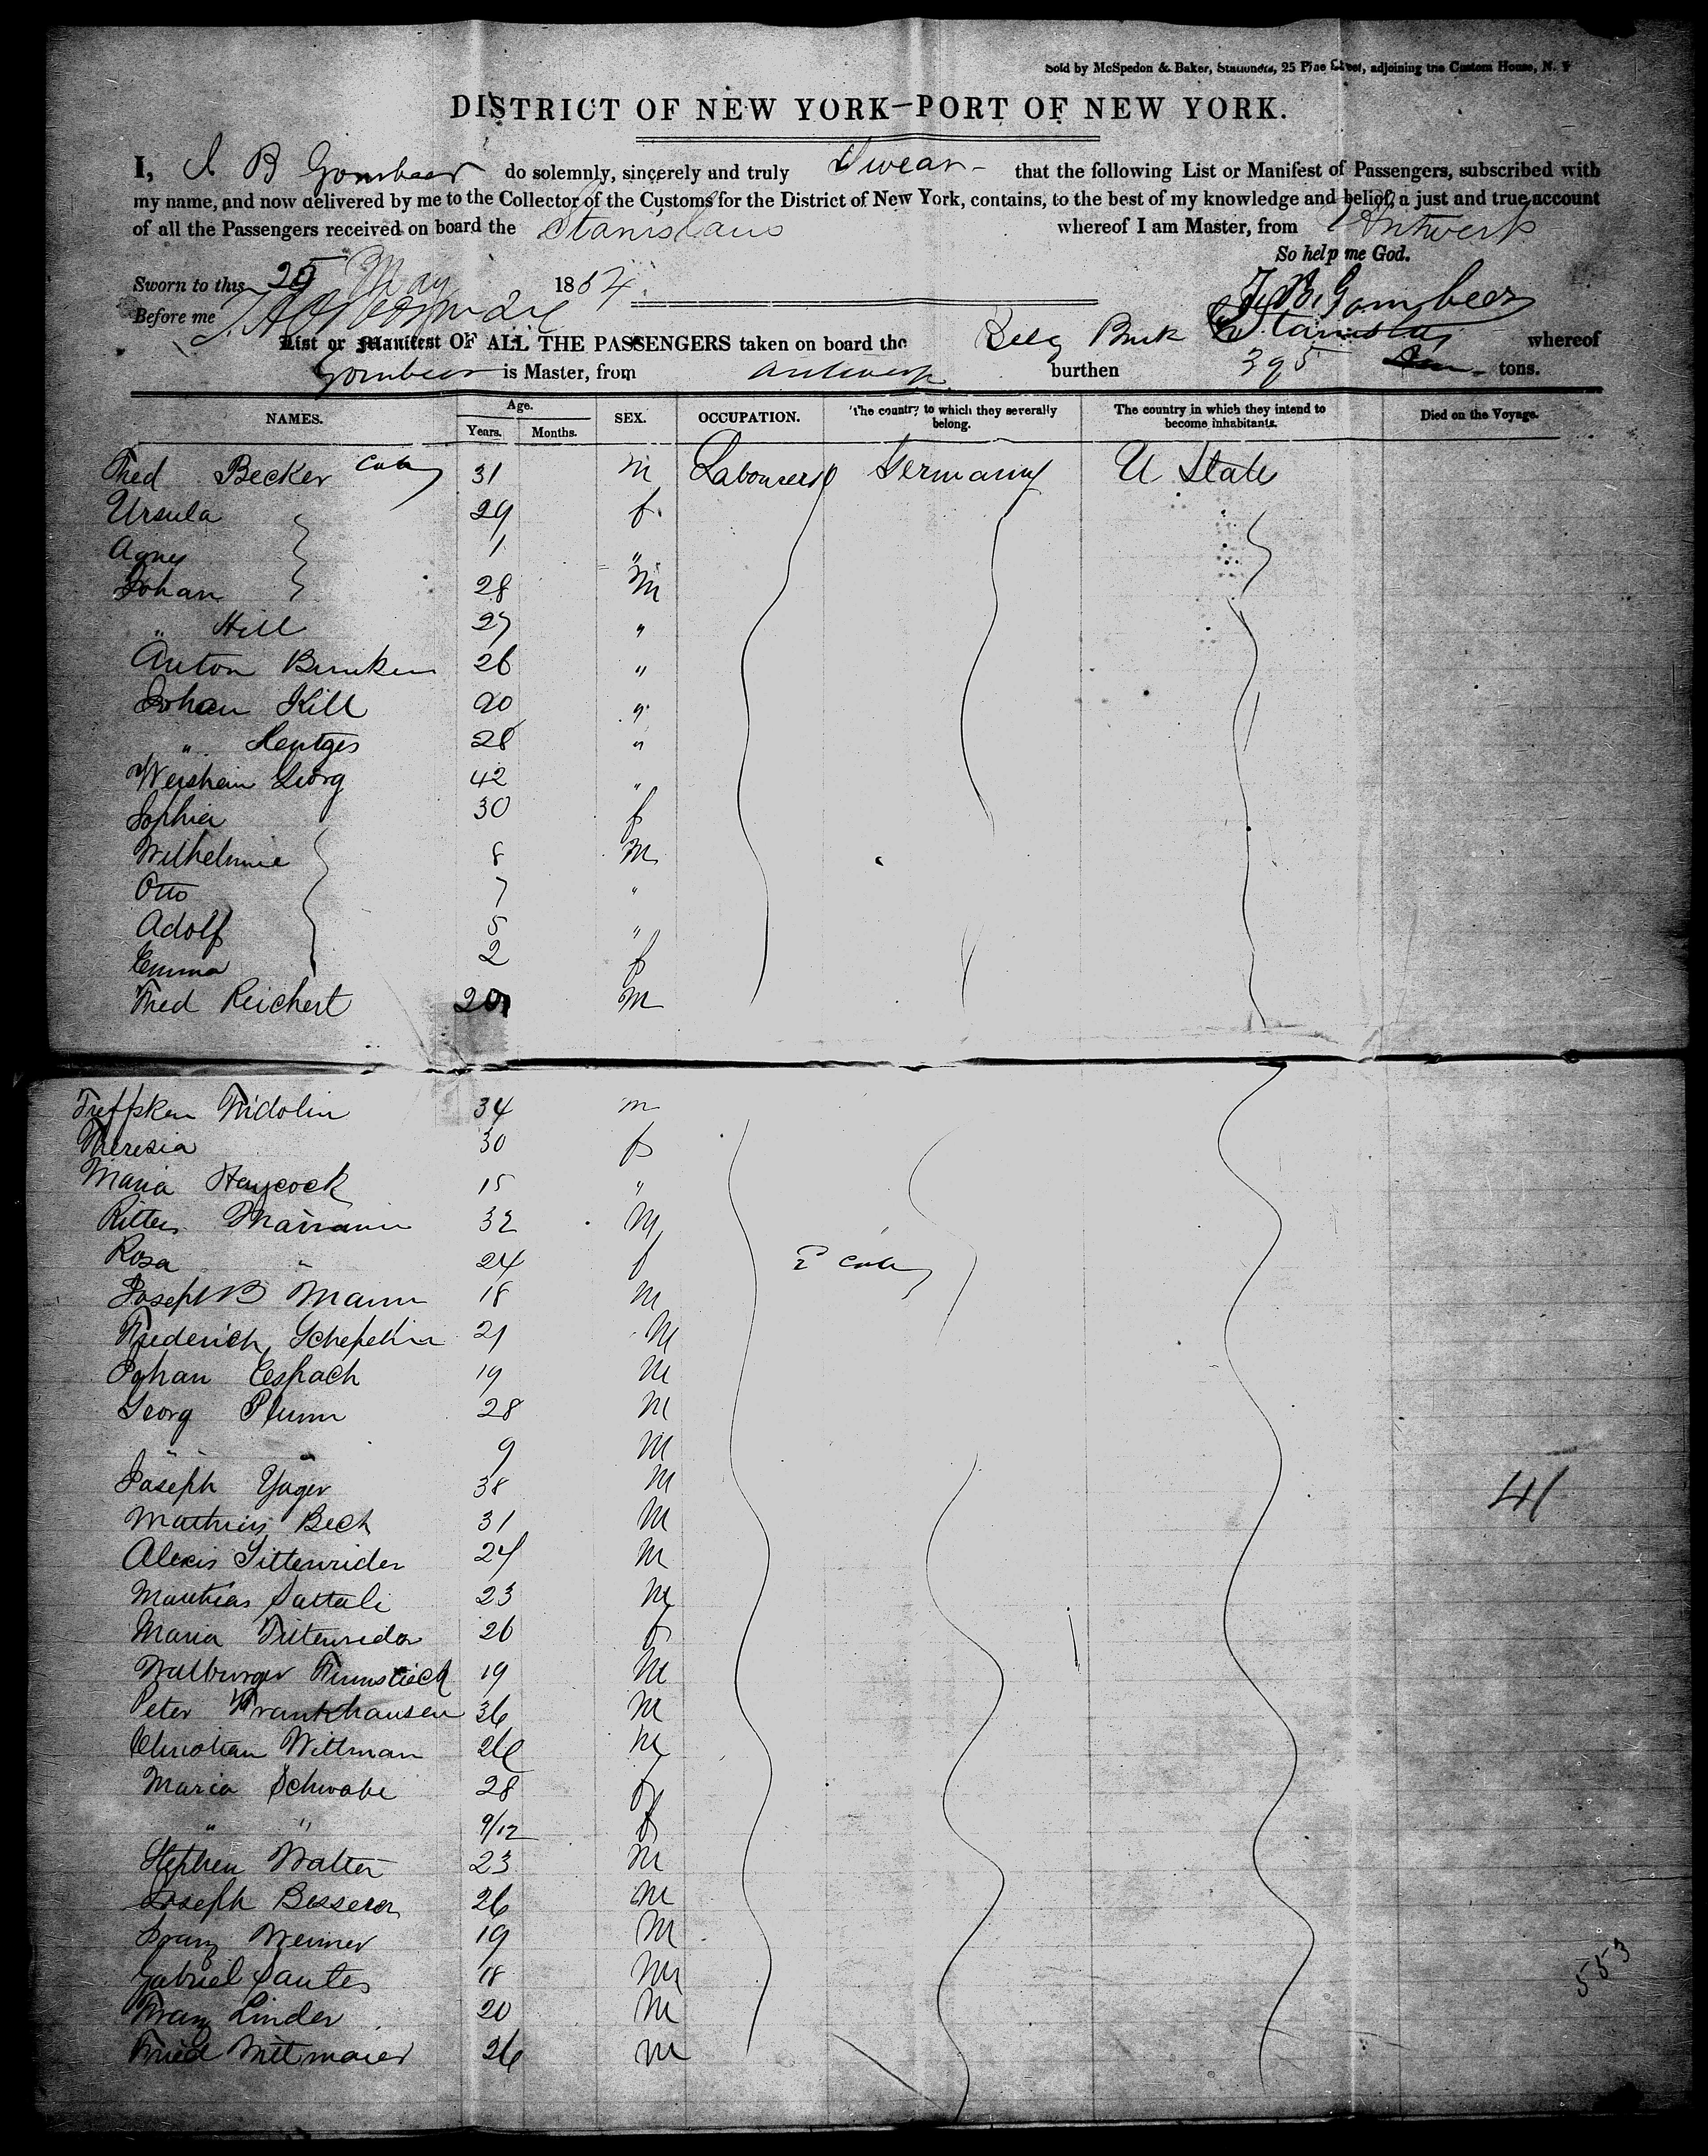 Sold by McSpedon & Baker, Stationers, 25 Pine Street, adjoining the Custom House, N. Y
DISTRICT OF NEW YORK—PORT OF NEW YORK.
I, J B Gombeer do solemnly, sincerely and truly Swear - that the following List or Manifest of Passengers, subscribed with
my name, and now delivered by me to the Collector of the Customs for the District of New York, contains, to the best of my knowledge and belief, a just and true account
of all the Passengers received on board the Stanislaus whereof I am Master, from Antwerp
So help me God.
Sworn to this 25 May 1864. J. B. Gombeer
Before me
List or Manifest OF ALL THE PASSENGERS taken on board the Belg Bark Stanislas whereof
Gombeer is Master, from Antwerp burthen 395 tons.
NAMES. Age. Years. Months. SEX. OCCUPATION. The country to which they severally belong. The country in which they intend to become inhabitants. Died on the Voyage.
Fred Becker 31 m Labourers Germany U State
Ursula 29 f
Agnes 1 "
Johan 28 m
" Hill 27 "
Anton 26 "
Johan Kill 20 "
" Hentges 28 "
Georg 42 "
Sophia 30 f
Wilhelmine 8 m
Otto 7 "
Adolf 5 "
Emma 2 f
Fred Reichert 20 m
Fridolin 34 m
Theresia 30 f
Maria Haycock 15 "
Ritter 32 m
Rosa " 24 f
Joseph B Mann 18 m
Friederich 21 m
Johan Espach 19 m
Georg 28 m
" " 9 m
Joseph Yager 38 m
Mathias Bech 31 m
Alexis 24 m
Matthias 23 m
Maria 26 f
Walburger 19 m
Peter Frankhausen 36 m
Christian Wittman 26 m
Maria Schwabe 28 f
" " 9/12 f
Stephen Walter 23 m
Joseph Besserer 26 m
Franz 19 m
Gabriel Santes 18 m
Franz Linder 20 m
Fried Wittmaier 26 m
41
553